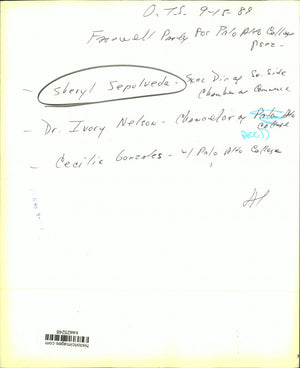 O.T.S. 9-15-88
Farewell Party for Palo Alto College
prez.
- Sheryl Sepulveda - Exec Dir of So. Side
Chamber of Commerce
- Dr. Ivory Nelson - Chancellor of Palo Alto
College
ACCD
- Cecilia Gonzales - w/ Palo Alto College
historicimages.com